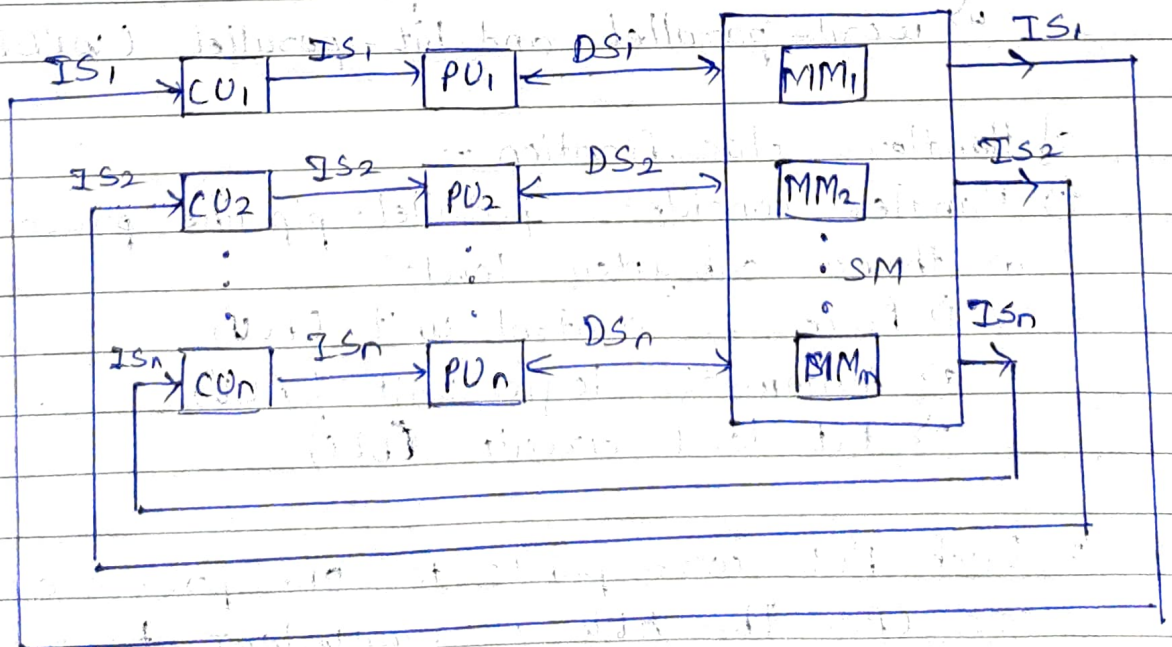 IS₁ CU₁ IS₁ PU₁ DS₁ MM₁ IS₁
IS₂ CU₂ IS₂ PU₂ DS₂ MM₂ IS₂
SM
ISₙ CUₙ ISₙ PUₙ DSₙ MMₘ ISₙ